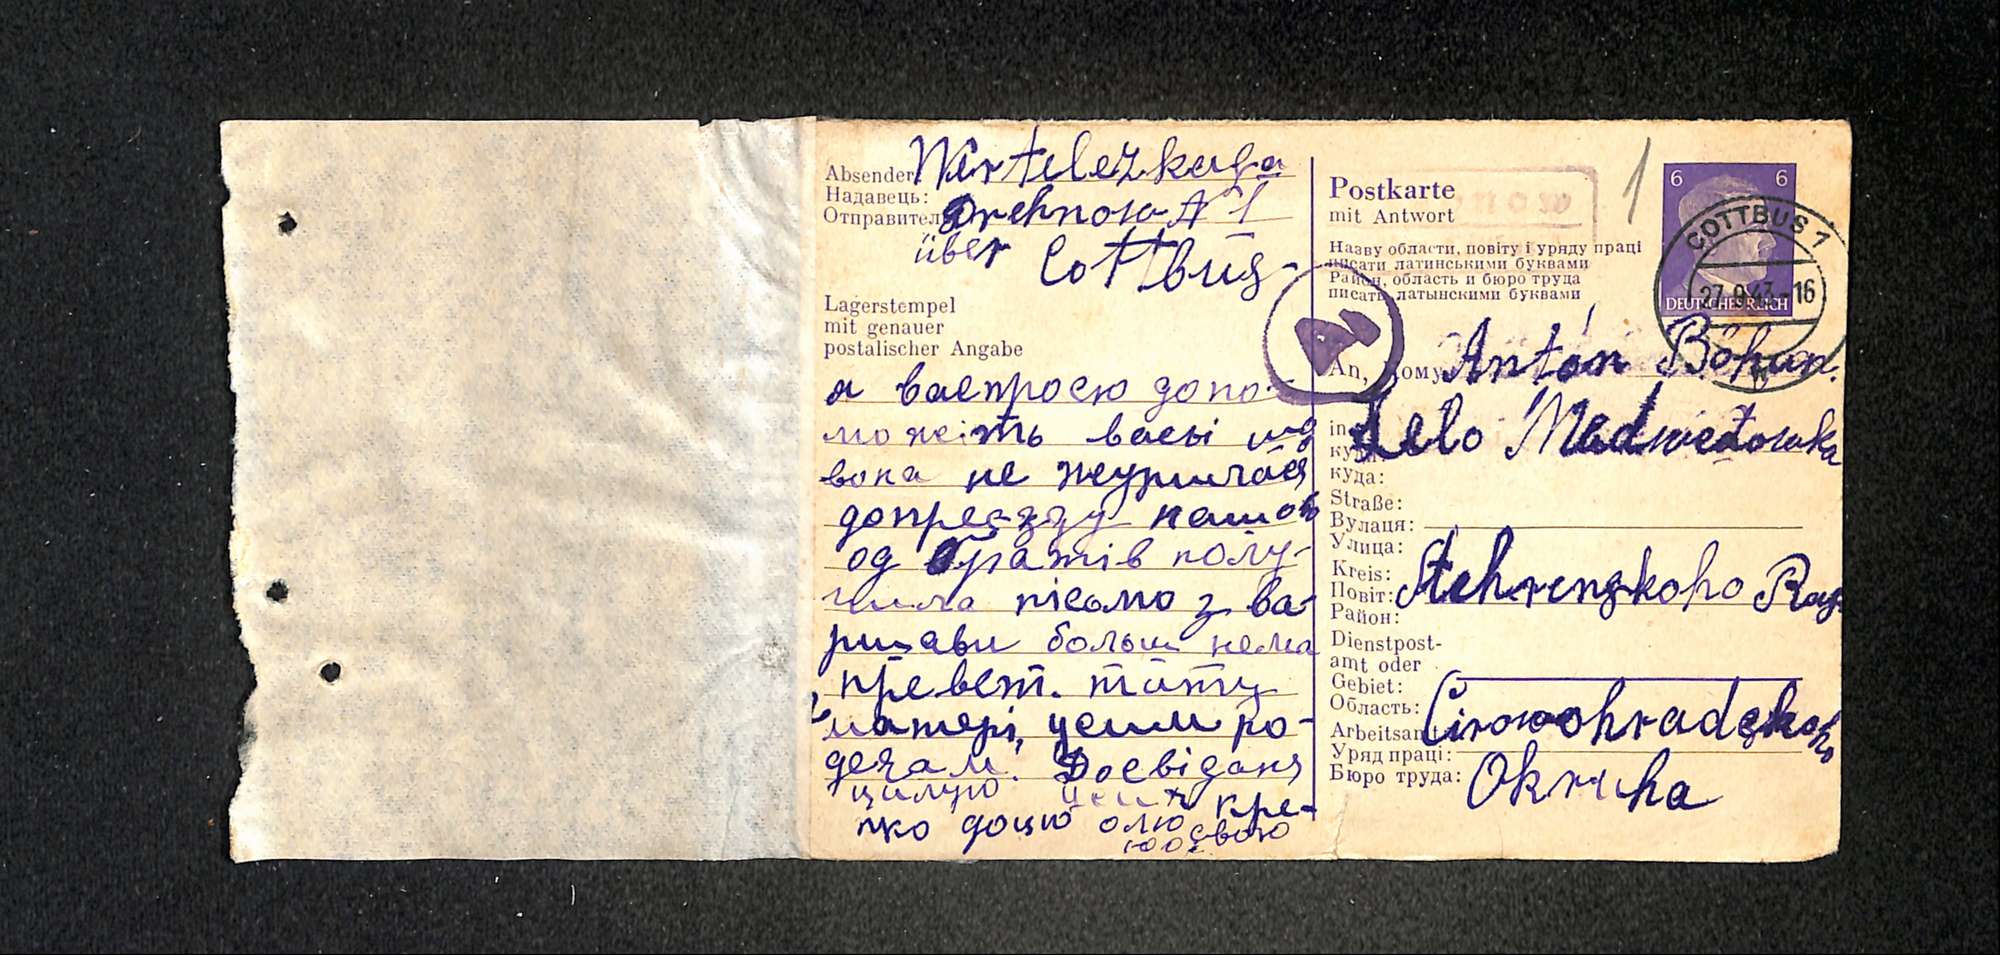 Absender
Надавець:
Отправител
Drehnow A 1
über Cottbus
Lagerstempel
mit genauer
postalischer Angabe
а васпросю допо-
можіть васьі що
вона не журилася
од братів полу-
чила пісьмо з ва-
ршави больш нема
превет. тату
матері, усим ро-
дечам. Досвіданя
цилую крє-
пко доцю олю свою
Postkarte
mit Antwort
Назву области, повіту і уряду праці
писати латинськими буквами
Район, область и бюро труда
писать латынскими буквами
6 6
DEUTSCHES REICH
COTTBUS 1
27.9.43.-16
1
An, кому Anton Bohun.
in
Selo Medweżowka
куда:
Straße:
Вулаця:
Улица:
Kreis:
Повіт:
Район:
Dienstpost-
amt oder
Gebiet:
Область:
Cirowohradskoho
Arbeitsamt
Уряд праці:
Бюро труда: Okruha